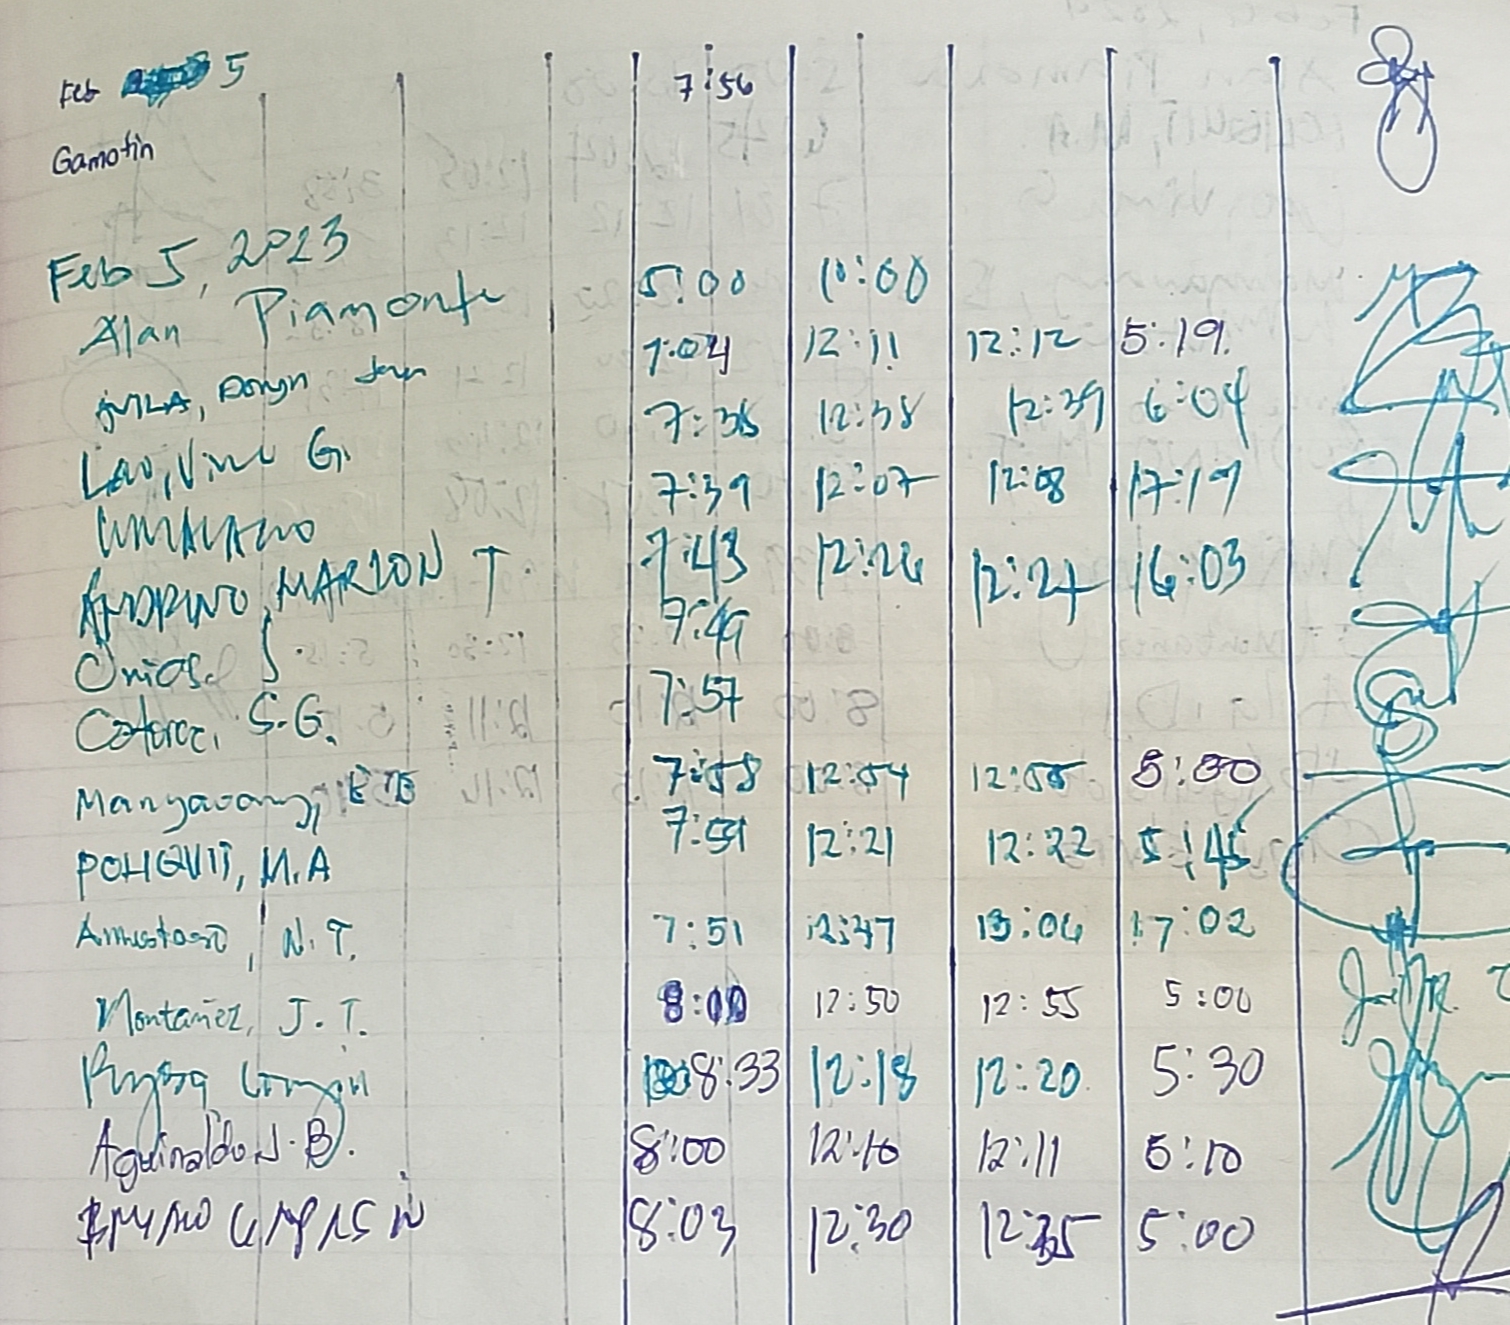 Feb 5 7:56
Gamotin
Feb 5, 2023
Alan Piamonte 5:00 10:00
AVILA, 7:04 12:11 12:12 5:19
Lao, Vine G. 7:36 12:38 12:39 6:04
UMALIANO 7:39 12:07 12:08 17:19
ANDRINO, MARLON T. 7:43 12:26 12:27 16:03
Onias. J. 7:49
S.G. 7:57
Mangaoang, 7:58 12:54 12:55 5:00
POLIQUIT, M.A 7:59 12:21 12:22 5:45
N.T. 7:51 12:47 13:06 17:02
Montañez, J.T. 8:00 12:50 12:55 5:00
8:33 12:18 12:20 5:30
Aguinaldo J.B. 8:00 12:10 12:11 5:10
8:03 12:30 12:35 5:00